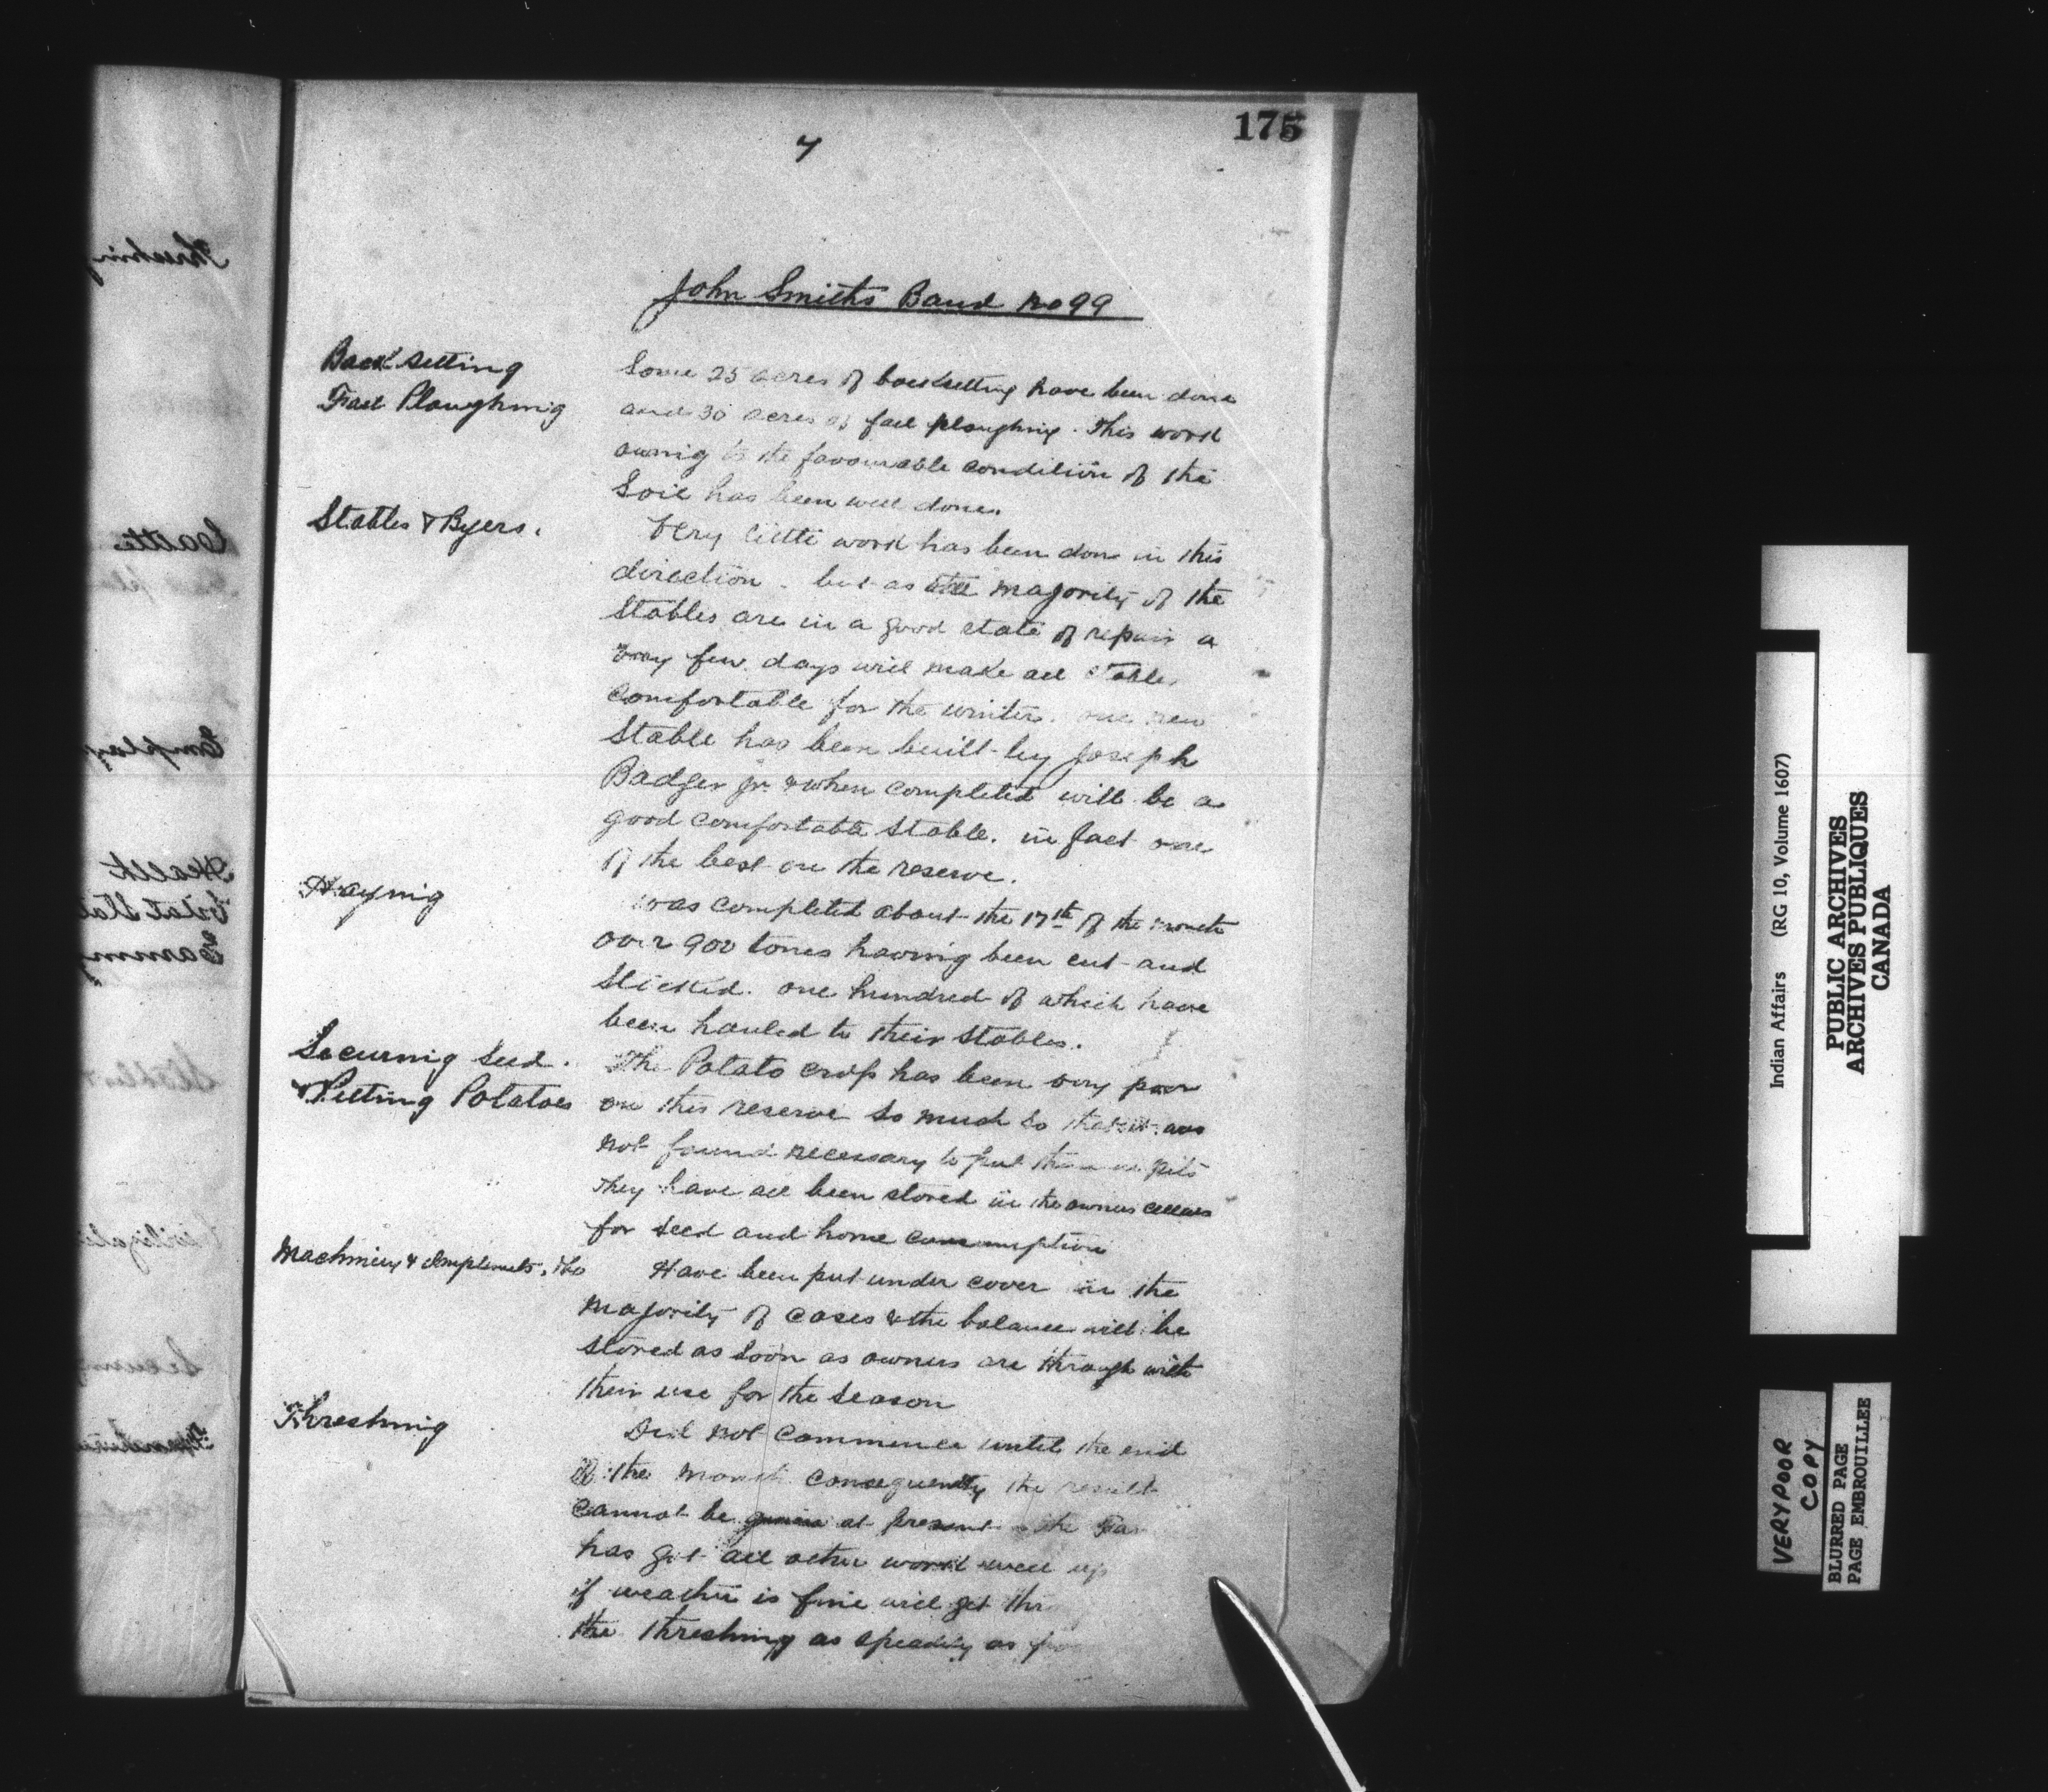 175
7
John Smiths Band no 99
Back setting
Fall Ploughing
Some 25 acres of backsetting have been done
and 30 acres of fall ploughing. This work
owing to the favourable condition of the
Soil has been well done.
Stables & Byers.
Very little work has been done in this
direction. but as the majority of the
Stables are in a good state of repair a
very few days will make all stables
comfortable for the winter. one new
Stable has been built by Joseph
Badger Jr. & when completed will be a
good comfortable stable. in fact one
of the best on the reserve.
Haying
was completed about the 17th of the month
over 900 tones having been cut and
stacked. one hundred of which have
been hauled to their stables.
Securing seed.
& Pitting Potatoes
The Potato crop has been very poor
on this reserve so much so that it was
not found necessary to put them in pits
They have all been stored in the owners cellars
for seed and home consumption
Machinery & Implements,
Have been put under cover in the
majority of cases & the balance will be
stored as soon as owners are through with
their use for the season
Threshing
Did not commence until the end
of the month consequently the result
cannot be given at present the
has got all other work well up
if weather is fine will get
the threshing as speedily as
Indian Affairs (RG 10, Volume 1607)
PUBLIC ARCHIVES
ARCHIVES PUBLIQUES
CANADA
VERY POOR
COPY
BLURRED PAGE
PAGE EMBROUILLEE